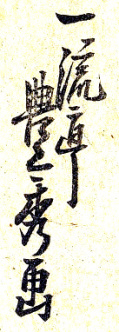 一流斎豊秀画